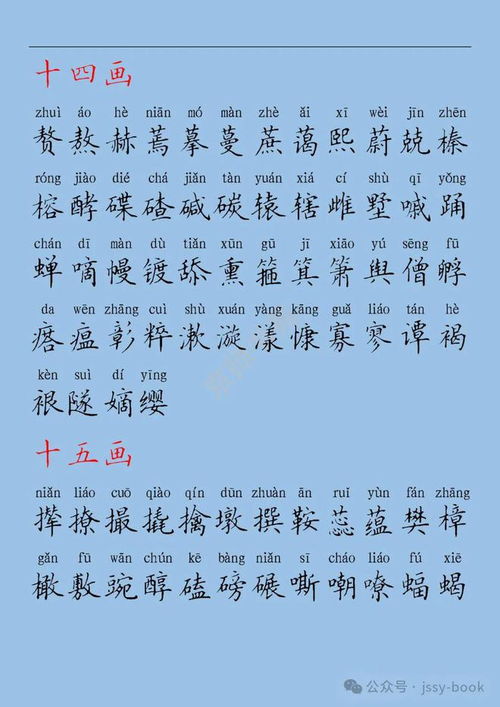 十四画
zhuì áo hè niān mó màn zhè ǎi xī wèi jīn zhēn
赘 熬 赫 蔫 摹 蔓 蔗 蔼 熙 蔚 兢 榛
róng jiào dié chá jiǎn tàn yuán xiá cí shù qī yǒng
榕 酵 碟 碴 碱 碳 辕 辖 雌 墅 嘁 踊
chán dī màn dù tiǎn xūn gū jī xiāo yú sēng fū
蝉 嘀 幔 镀 舔 熏 箍 箕 箫 舆 僧 孵
da wēn zhāng cuì shù xuán yàng kāng guǎ liáo tán hè
瘩 瘟 彰 粹 漱 漩 漾 慷 寡 寥 谭 褐
kèn suì dí yīng
裉 隧 嫡 缨
十五画
niǎn liáo cuō qiào qín dūn zhuàn ān ruǐ yùn fán zhāng
撵 撩 撮 撬 擒 墩 撰 鞍 蕊 蕴 樊 樟
gǎn fū wān chún kē bàng niǎn sī cháo liáo fú xiē
橄 敷 豌 醇 磕 磅 碾 嘶 嘲 嘹 蝠 蝎
公众号 · jssy-book